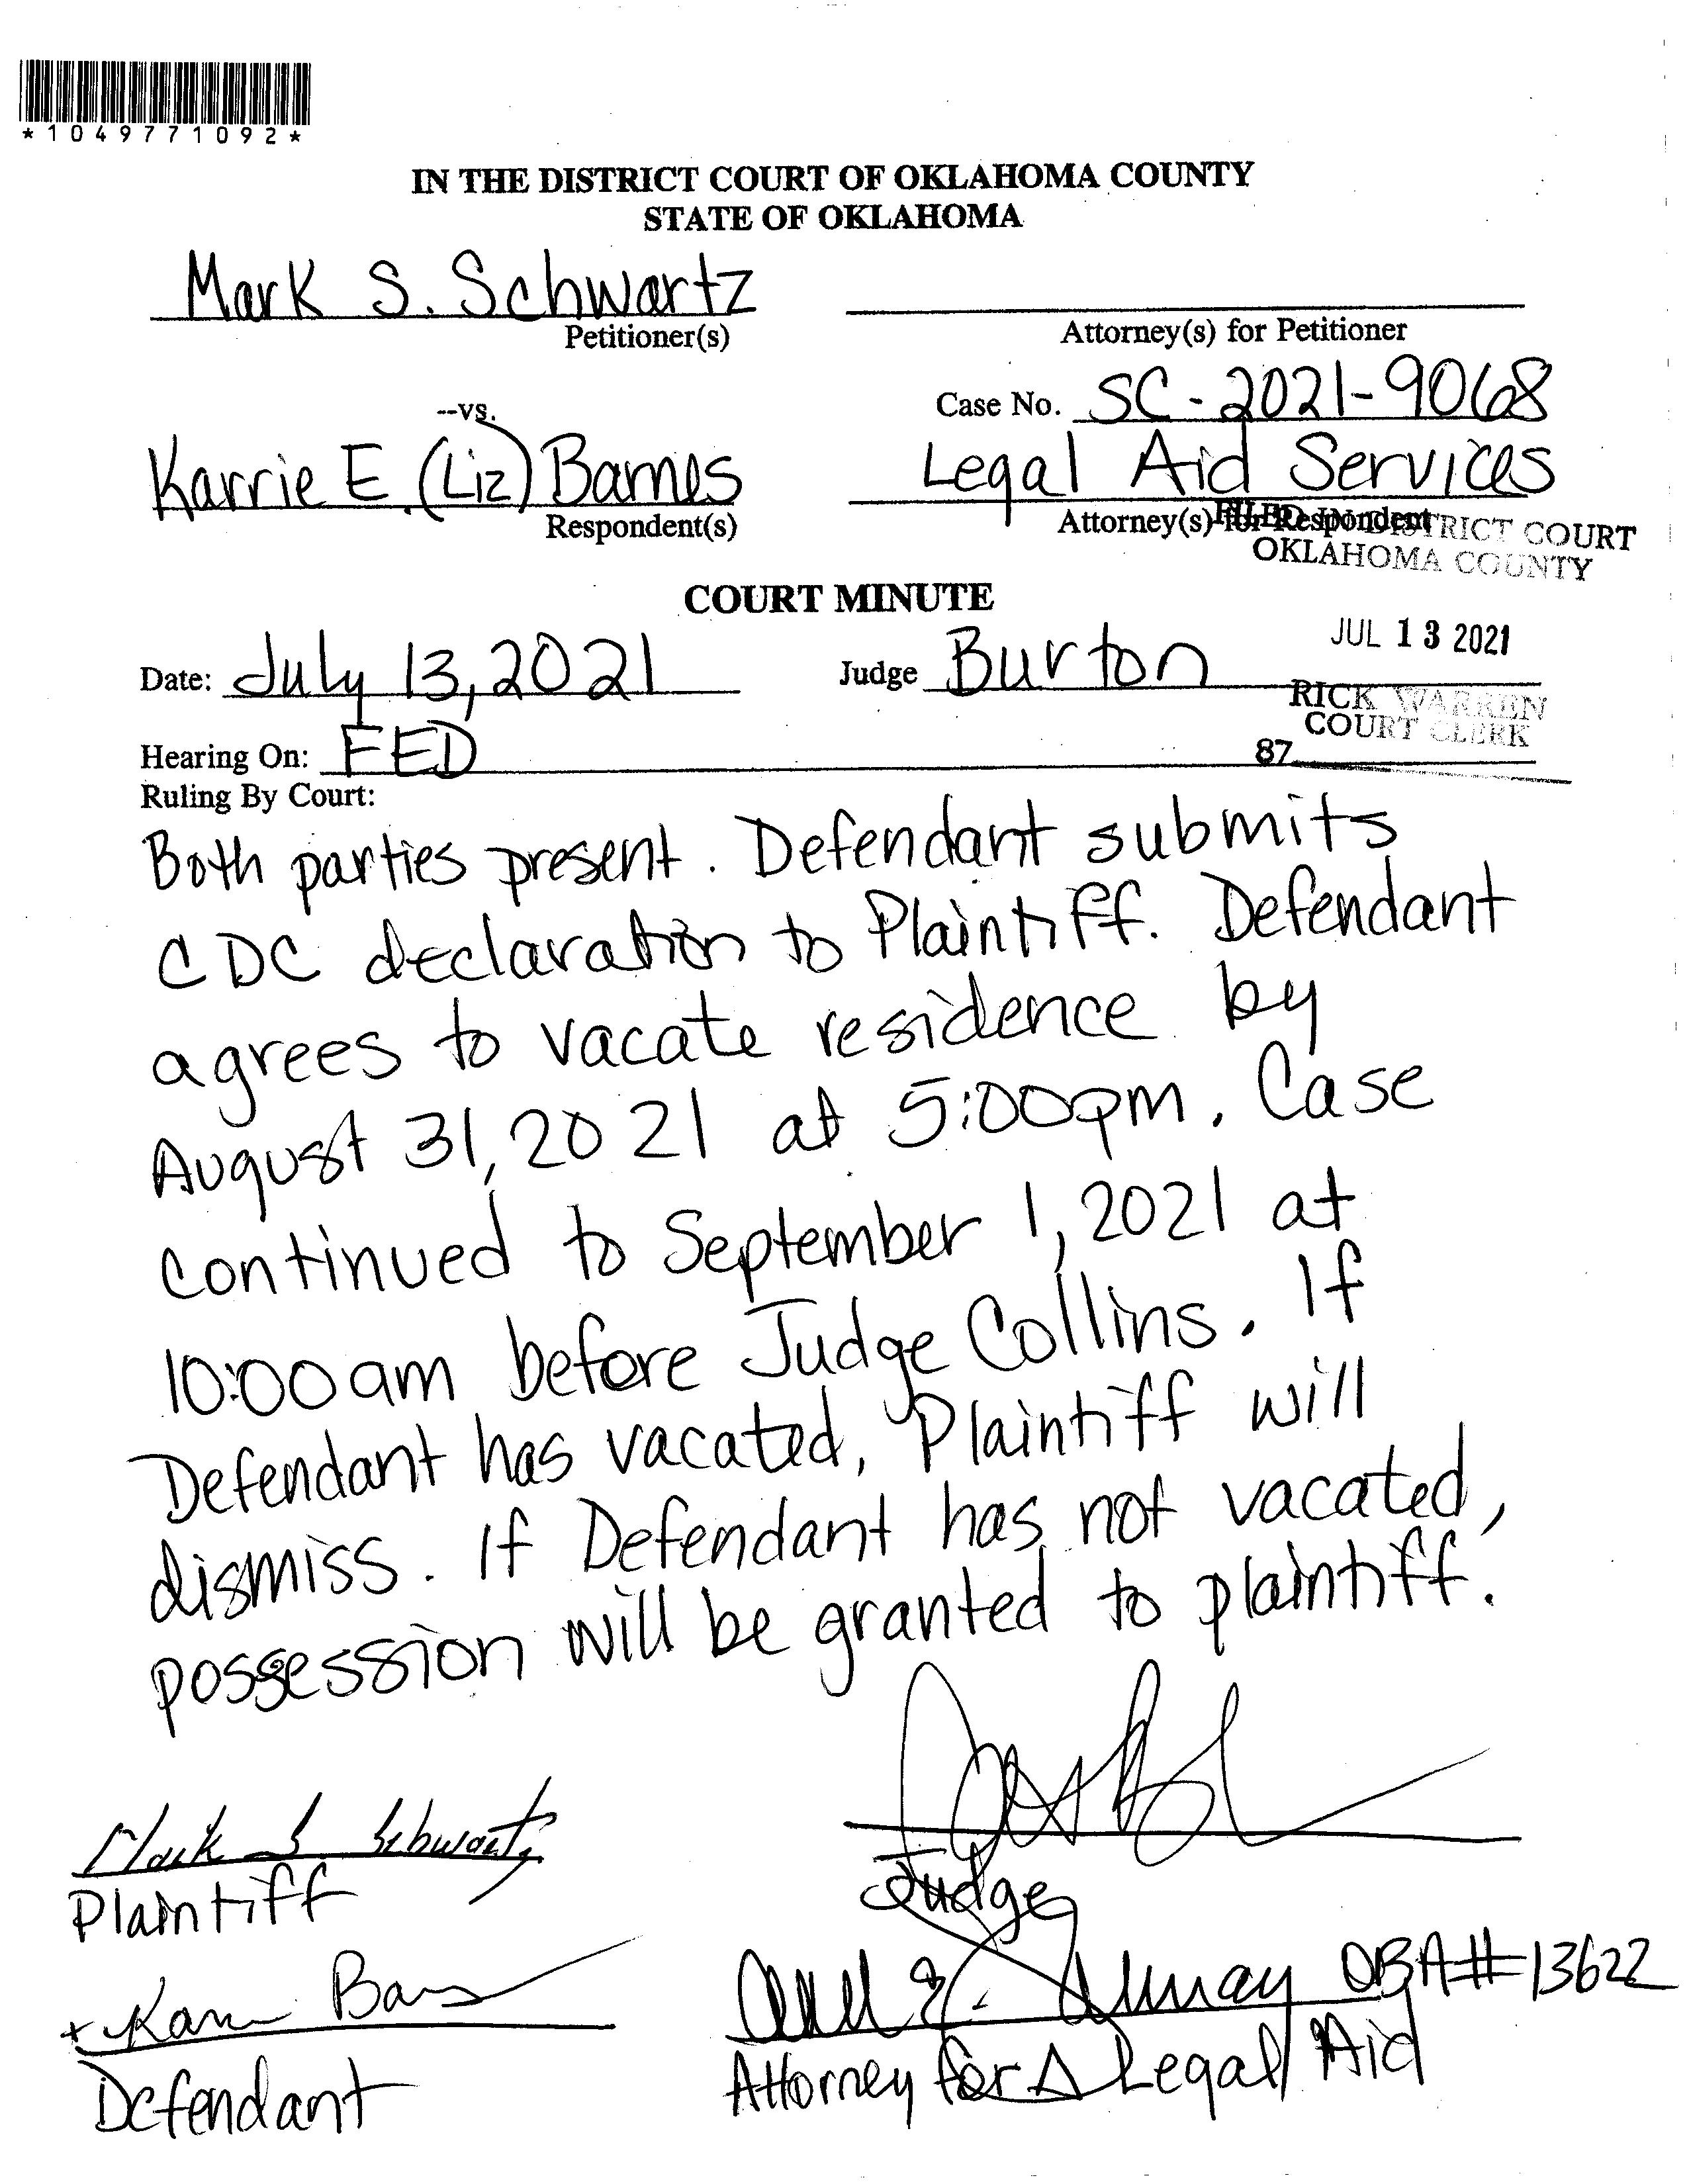 *1049771092*
IN THE DISTRICT COURT OF OKLAHOMA COUNTY
STATE OF OKLAHOMA
Mark S. Schwartz
Petitioner(s)
Attorney(s) for Petitioner
--vs.
Case No. SC-2021-9068
Karrie E. (Liz) Barnes
Respondent(s)
Legal Aid Services
Attorney(s) for Respondent
FILED IN DISTRICT COURT
OKLAHOMA COUNTY
COURT MINUTE
JUL 13 2021
Date: July 13, 2021
Judge Burton
RICK WARREN
COURT CLERK
87
Hearing On: FED
Ruling By Court:
Both parties present. Defendant submits
CDC declaration to Plaintiff. Defendant
agrees to vacate residence by
August 31, 2021 at 5:00pm. Case
continued to September 1, 2021 at
10:00am before Judge Collins. If
Defendant has vacated, Plaintiff will
dismiss. If Defendant has not vacated,
possession will be granted to plaintiff.
Mark S. Schwartz
Plaintiff
Judge
OBA#13622
Defendant
Attorney for Δ Legal Aid